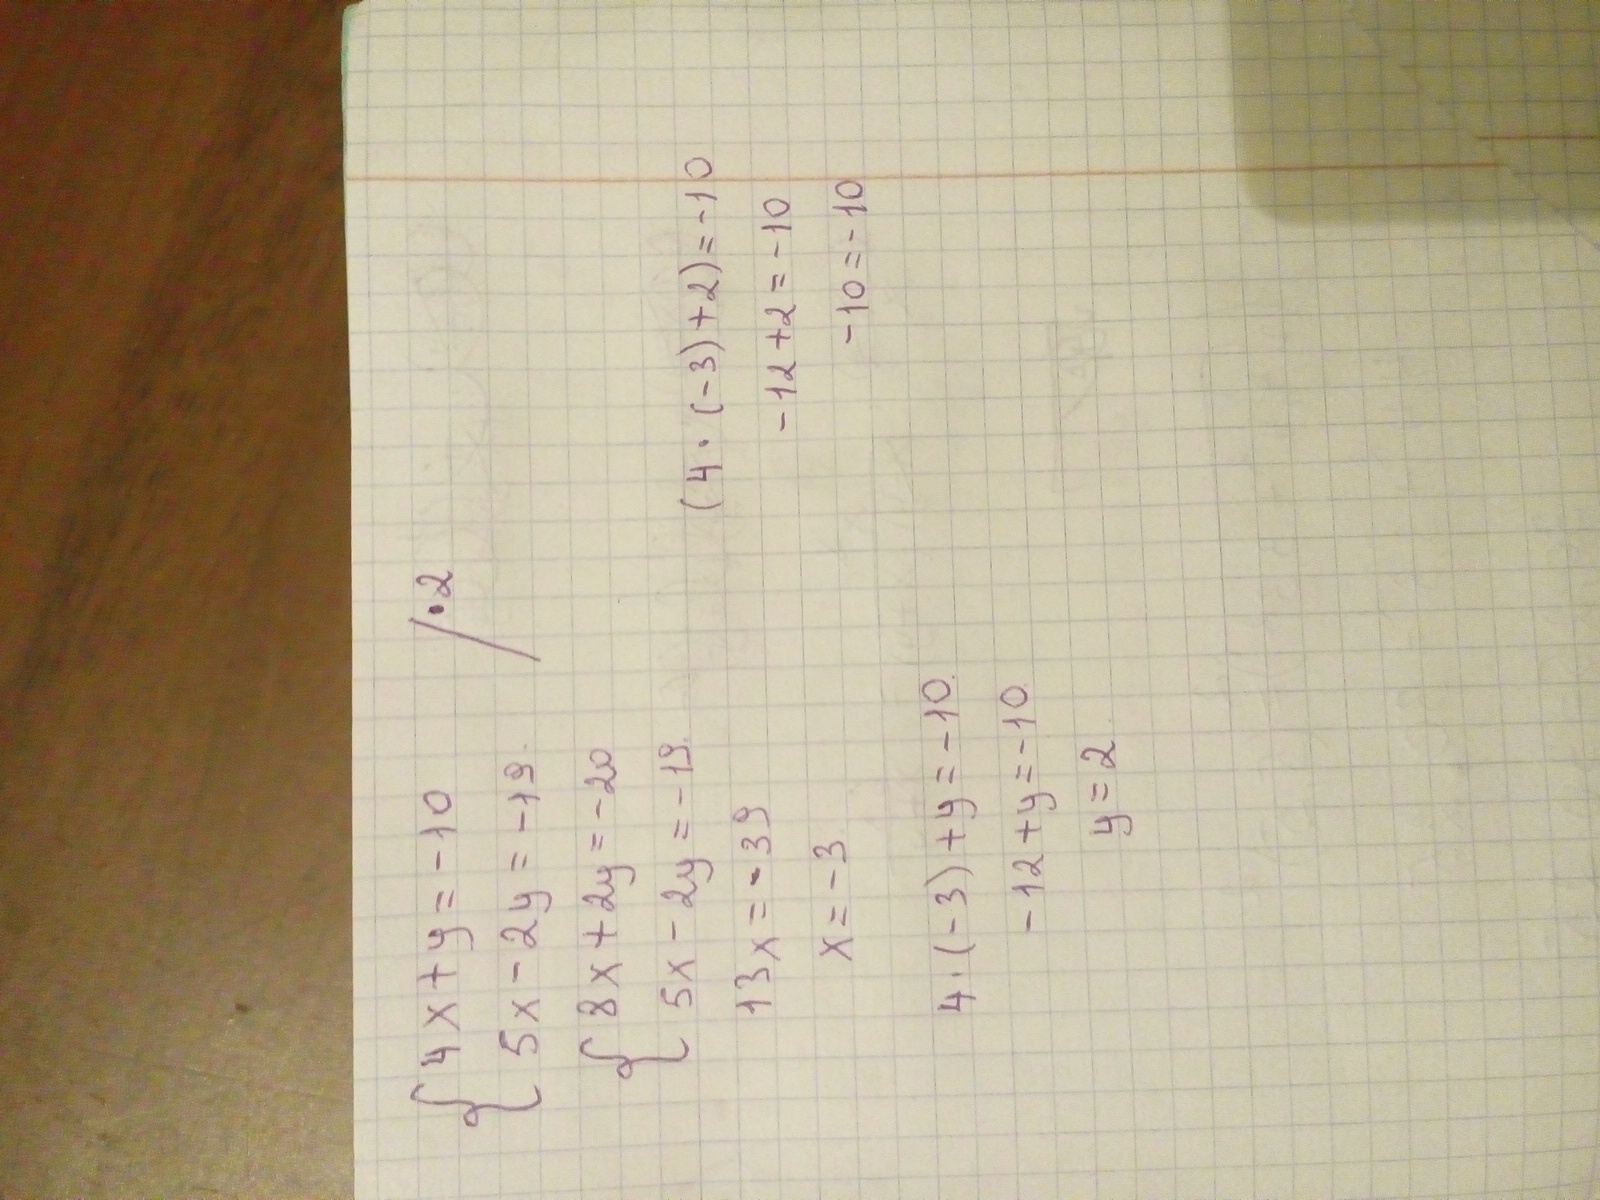 {4x+y=-10 /•2
5x-2y=-19.
{8x+2y=-20
5x-2y=-19.
13x=-39
x=-3
4·(-3)+y=-10.
-12+y=-10.
y=2
(4·(-3)+2)=-10
-12+2=-10
-10=-10